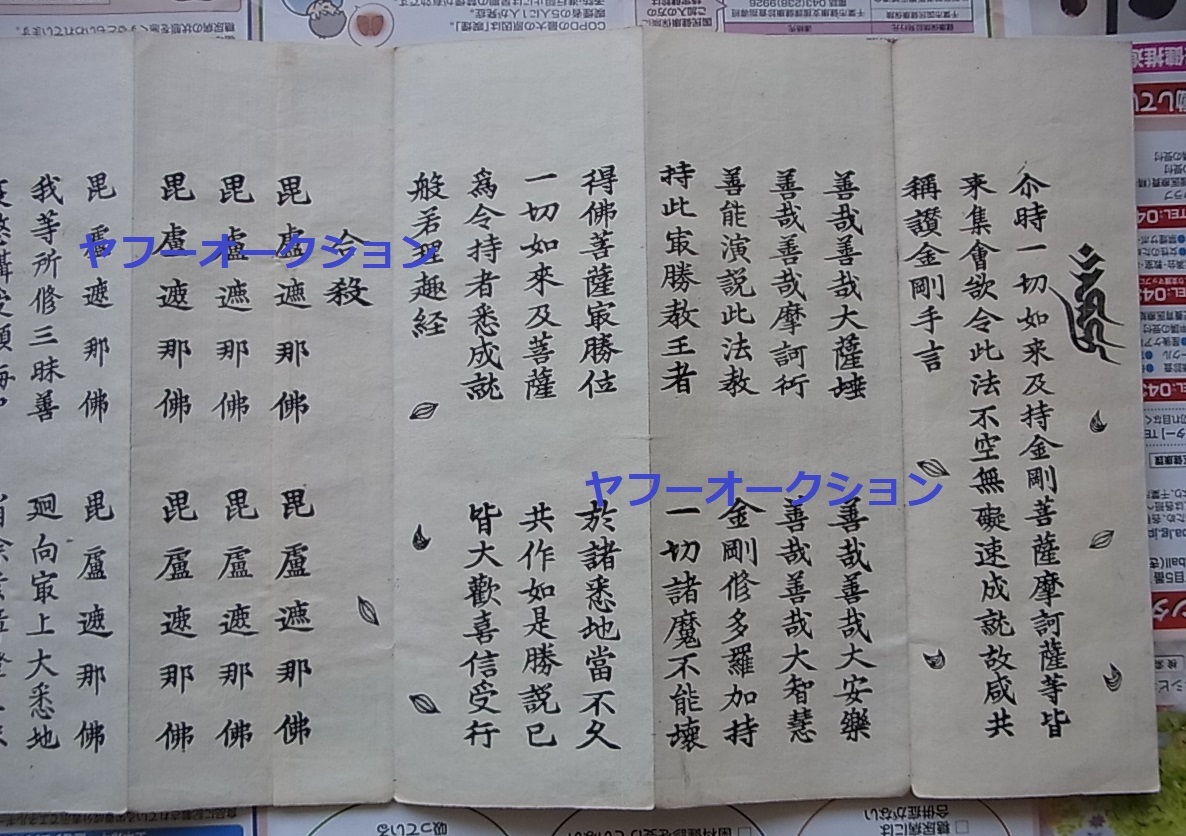 尒時一切如来及持金剛菩薩摩訶薩等皆
来集會欲令此法不空無礙速成就故咸共
稱讃金剛手言
善哉善哉大薩埵 善哉善哉大安樂
善哉善哉摩訶衍 善哉善哉大智慧
善能演説此法教 金剛修多羅加持
持此㝡勝教王者 一切諸魔不能壊
得佛菩薩㝡勝位 於諸悉地當不久
一切如来及菩薩 共作如是勝説已
爲令持者悉成就 皆大歡喜信受行
般若理趣経
合殺
毘盧遮那佛 毘盧遮那佛
毘盧遮那佛 毘盧遮那佛
毘盧遮那佛 毘盧遮那佛
毘盧遮那佛 毘盧遮那佛
我等所修三昧善 廻向㝡上大悉地
ヤフーオークション
ヤフーオークション
043(238)9926
COPDの最大の原因は「喫煙」
吸っている
合併症がない
糖尿病には